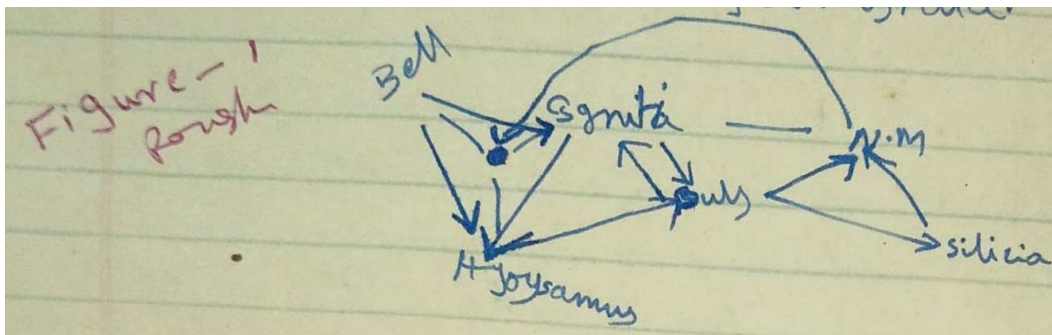 Figure - 1
Rough
Bell
Ignitá
N.M
Puls
silicia
Hyoysamus